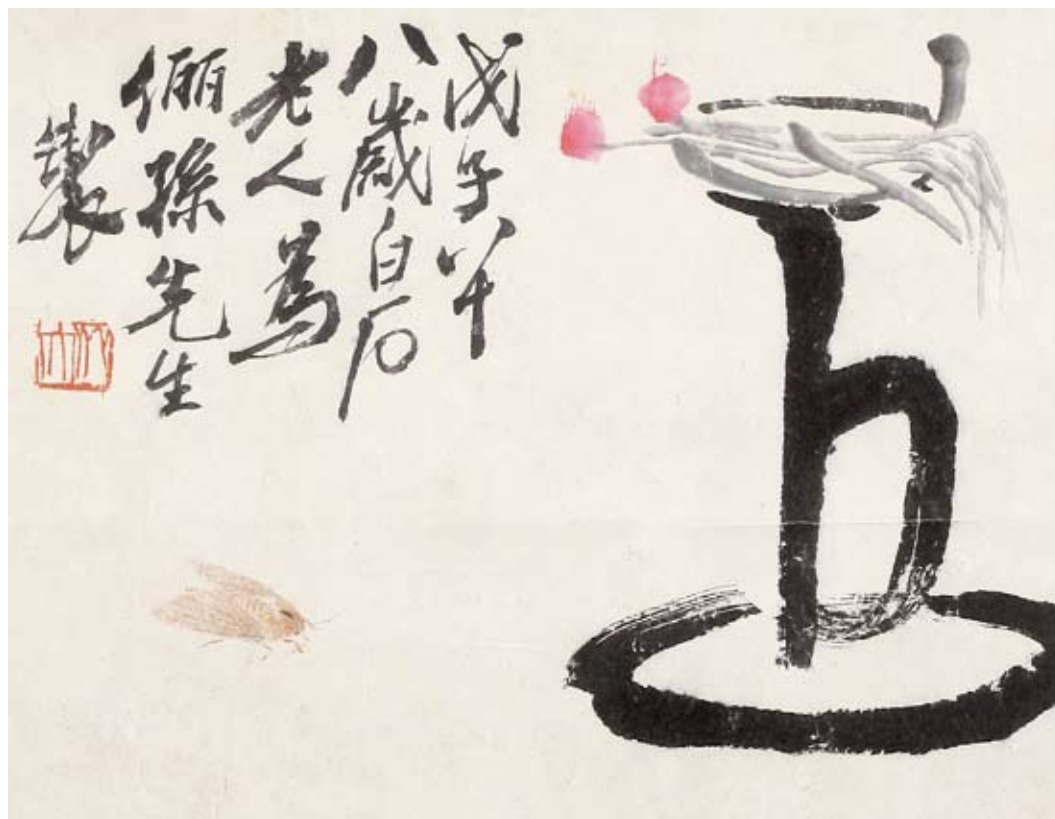 戊子八十
八歲白石
老人為
俪孫先生
製